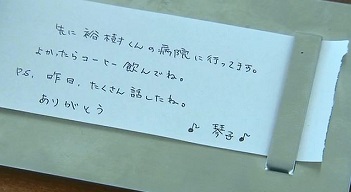 先に裕樹くんの病院に行ってます。
よかったらコーヒー飲んでね。
P.S. 昨日、たくさん話したね。
ありがとう
♪ 琴子 ♪